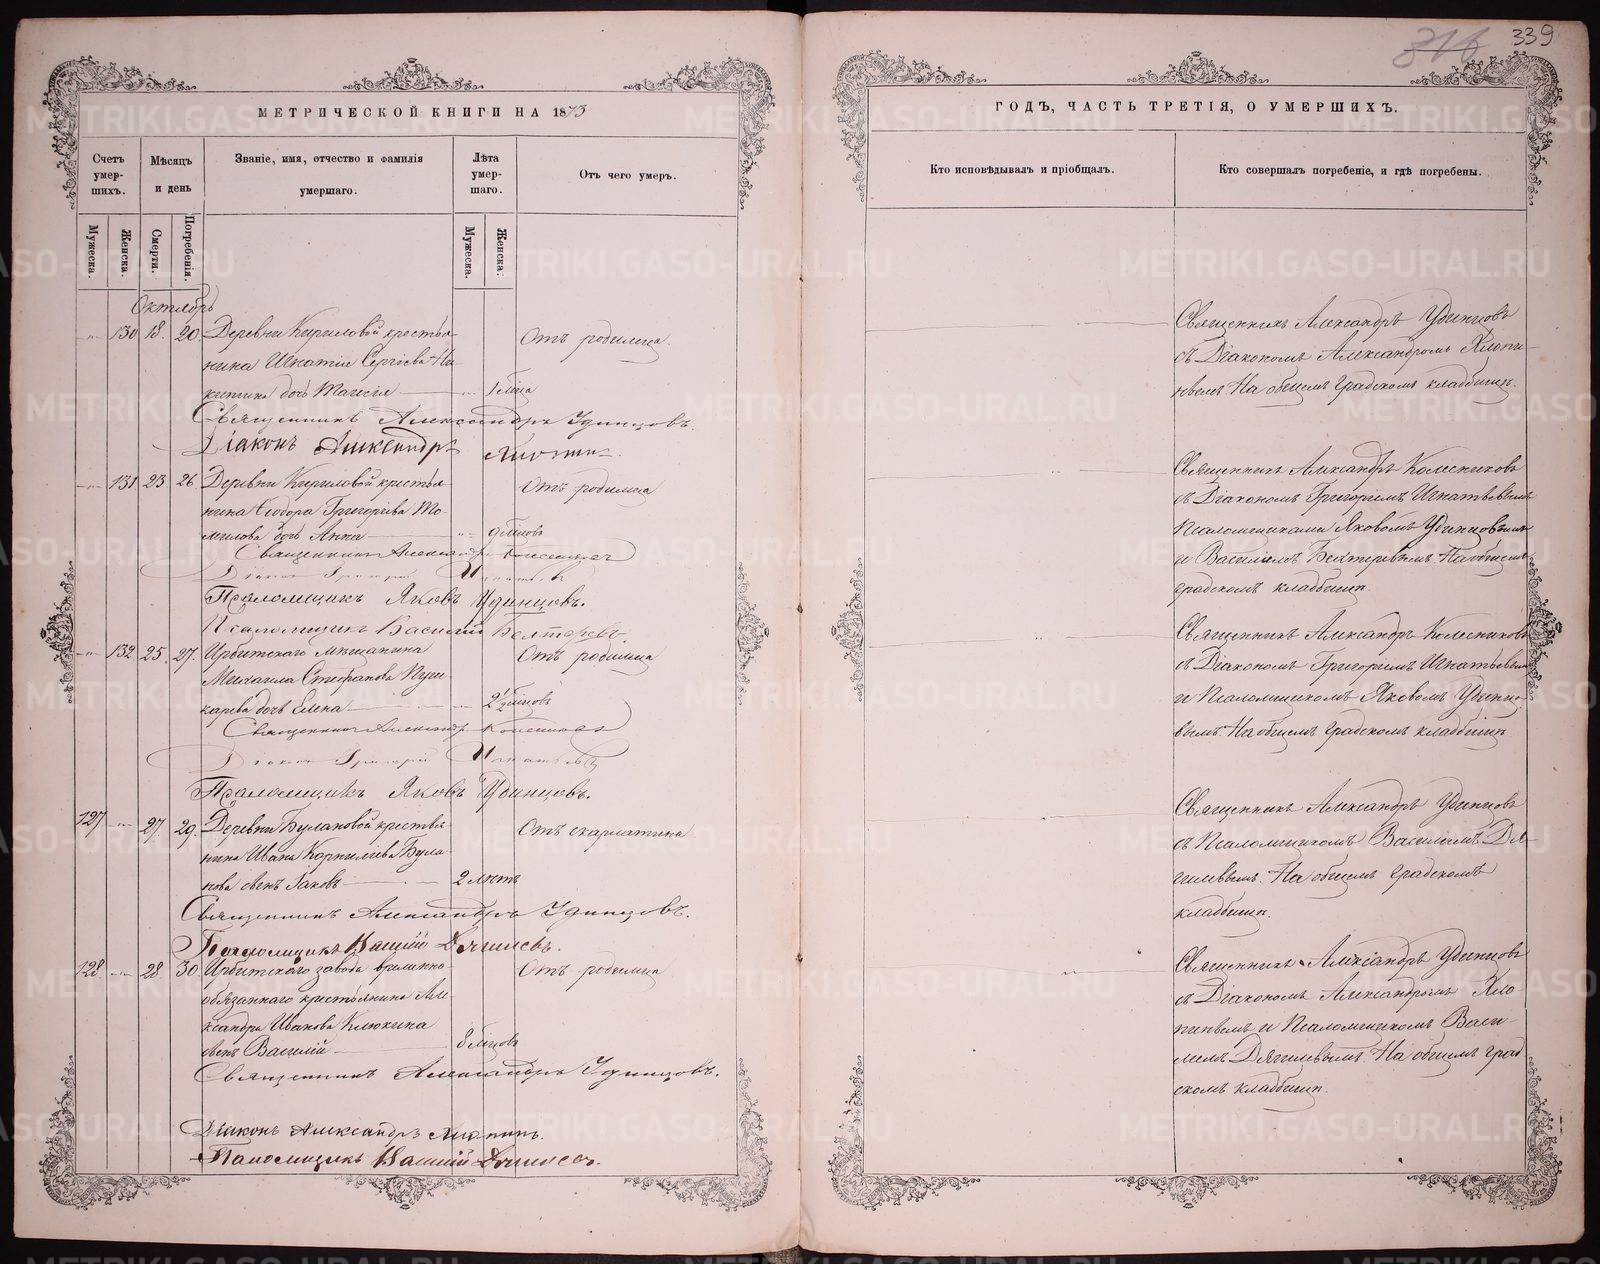 339
МЕТРИЧЕСКОЙ КНИГИ НА 1873
Счетъ умер-шихъ.
Мѣсяцъ и день
Званіе, имя, отчество и фамилія умершаго.
Лѣта умер-шаго.
Отъ чего умеръ.
Мужеска.
Женска.
Смерти.
Погребенія.
Мужеска.
Женска.
Октябрь
130 18. 20. Деревни Кириловой крестья-
нина Игнатія Сергіева Ни-
китина дочь Таисія 1 мѣсяца
Отъ родимца.
Священникъ Александръ Удинцовъ.
Діаконъ Александръ
131 23 26 Деревни Кириловой крестья-
нина Ѳеодора Григоріева То-
милова дочь Анна
Отъ родимца
Священникъ
Псаломщикъ Яковъ Удинцовъ.
Псаломщикъ Василій Бехтеревъ.
132 25. 27. Ирбитскаго мѣщанина
Михаила Стефанова Пуш-
карева дочь Елена
Отъ родимца
Священникъ
Псаломщикъ Яковъ Удинцовъ.
127 27. 29. Деревни Булановой крестья-
нина Ивана Корнилиева Була-
нова сынъ Іаковъ 2 лѣтъ
Отъ скарлатина
Священникъ Александръ Удинцовъ.
Псаломщикъ Василій Дягилевъ.
128. 28 30. Ирбитскаго завода временно-
обязаннаго крестьянина Але-
ксандра Иванова Клюкина
сынъ Василій 8 мѣсцовъ
Отъ родимца
Священникъ Александръ Удинцовъ.
Діаконъ Александръ Хлопинъ.
Псаломщикъ Василій Дягилевъ.
ГОДЪ, ЧАСТЬ ТРЕТІЯ, О УМЕРШИХЪ.
Кто исповѣдывалъ и пріобщалъ.
Кто совершалъ погребеніе, и гдѣ погребены.
Священникъ Александръ Удинцовъ
съ Діакономъ Александромъ Хлопи-
нымъ На общемъ градскомъ кладбищѣ.
Священникъ Александръ Колесниковъ
съ Діакономъ Григоріемъ Игнатьевымъ
Псаломщиками Яковомъ Удинцовымъ
и Василіемъ Бехтеревымъ. На общемъ
градскомъ кладбищѣ.
Священникъ Александръ Колесниковъ
съ Діакономъ Григоріемъ Игнатьевымъ
и Псаломщикомъ Яковомъ Удинцо-
вымъ. На общемъ градскомъ кладбищѣ
Священникъ Александръ Удинцовъ
съ Псаломщикомъ Василіемъ Дя-
гилевымъ. На общемъ градскомъ
кладбищѣ.
Священникъ Александръ Удинцовъ
съ Діакономъ Александромъ Хло-
пинымъ и Псаломщикомъ Васи-
лемъ Дягилевымъ. На общемъ град
скомъ кладбищѣ.
METRIKI.GASO-URAL.RU